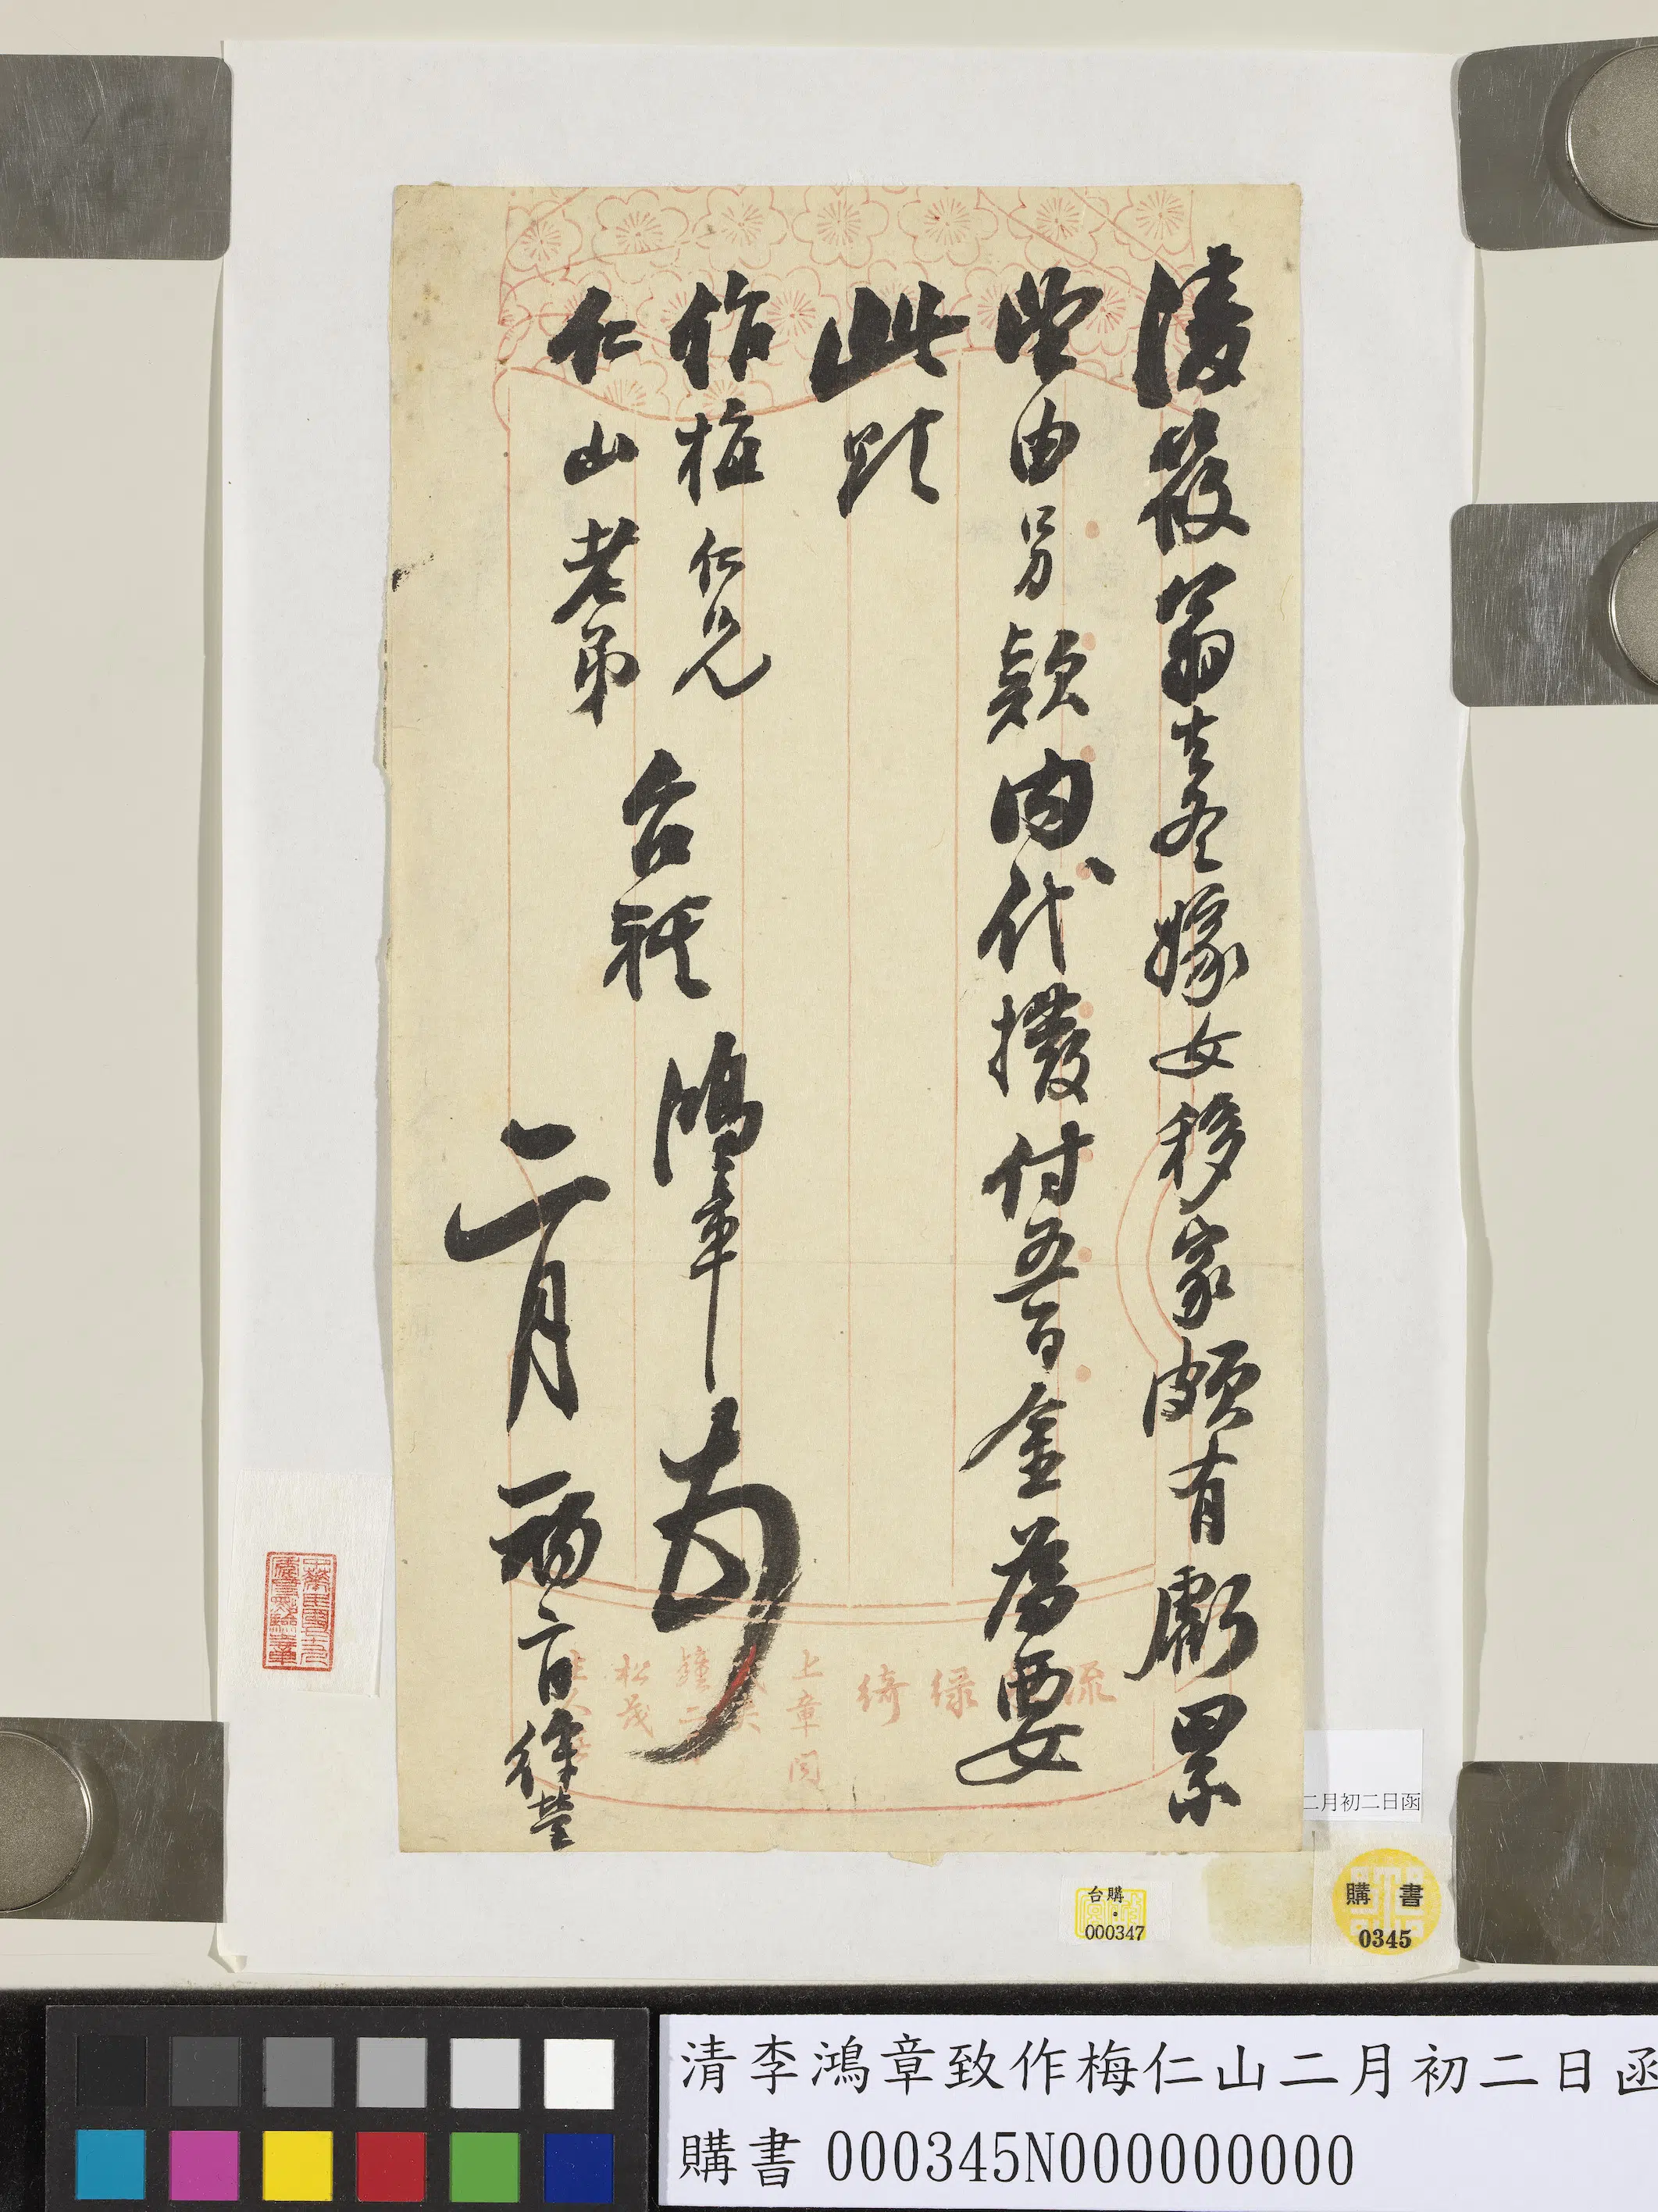 凌筱翁去冬嫁女移家頗有虧累
望由另款內代撥付五百金為要
此頌
作梅仁兄
仁山老弟
台祺
鴻章
二月初二日徐營
流 綠綺
上章
松茂
二月初二日函
台購
000347
購書
0345
清李鴻章致作梅仁山二月初二日函
購書 000345N000000000